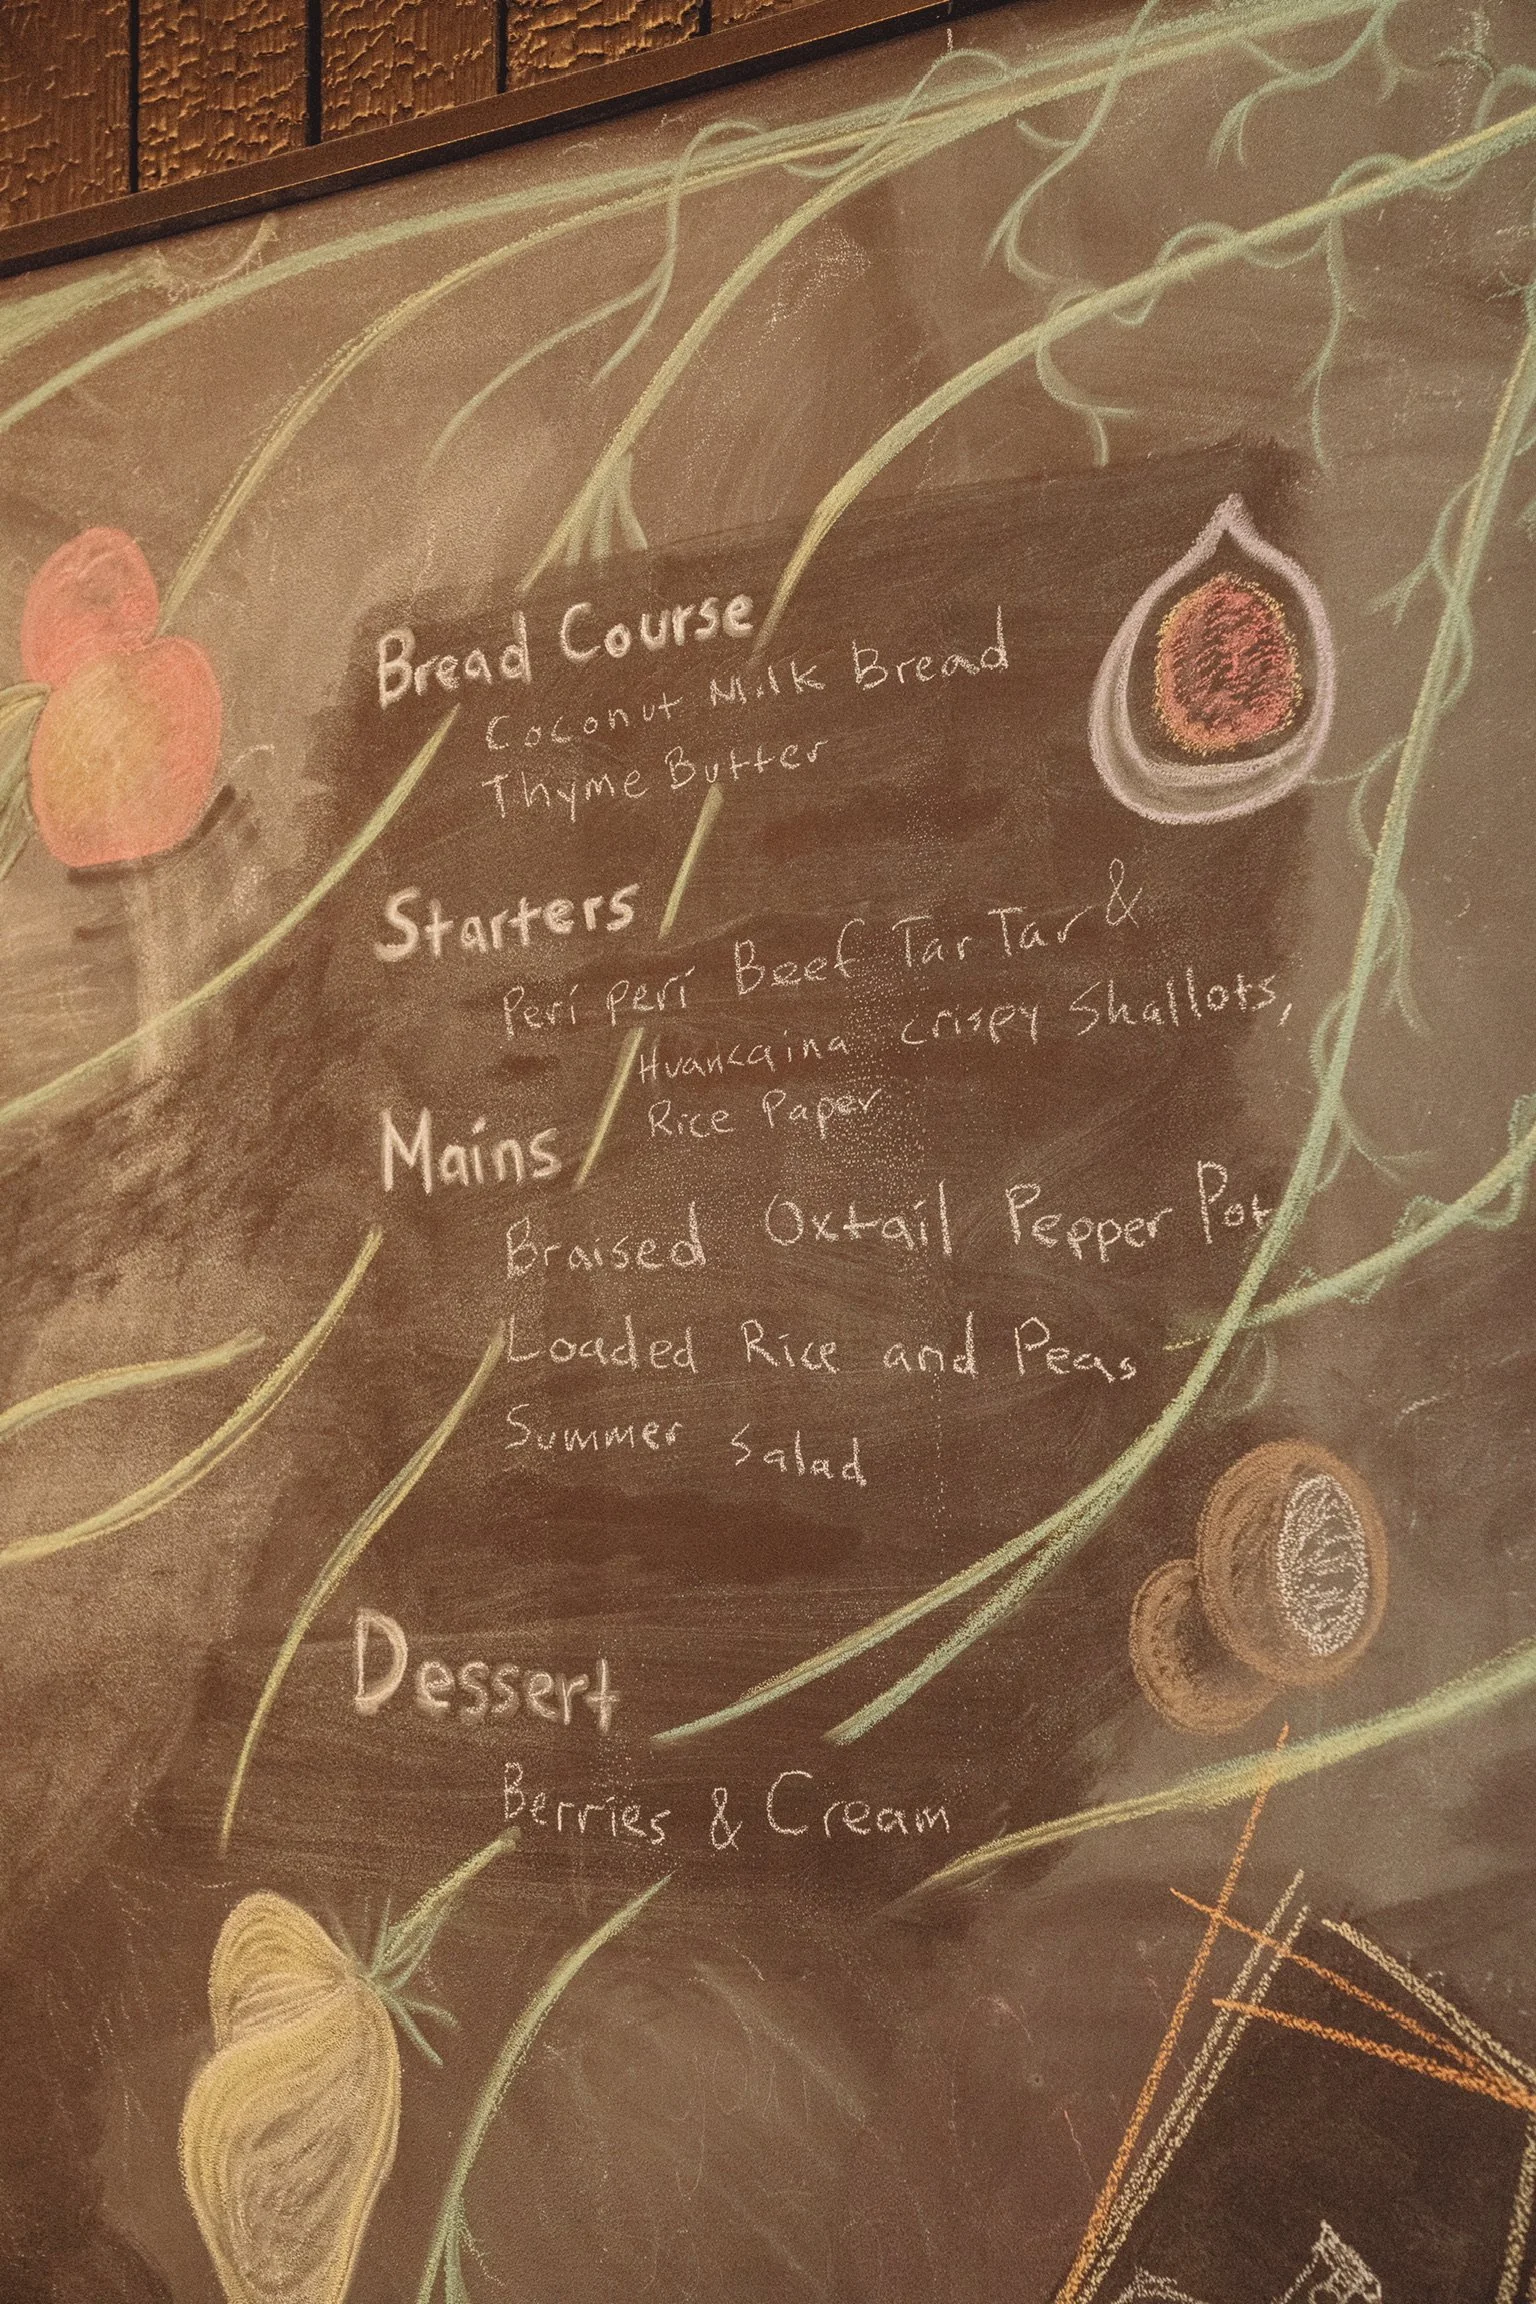 Bread Course
Coconut Milk Bread
Thyme Butter
Starters
Peri peri Beef Tar Tar &
Huancaina crispy Shallots,
Rice Paper
Mains
Braised Oxtail Pepper Pot
Loaded Rice and Peas
Summer Salad
Dessert
Berries & Cream